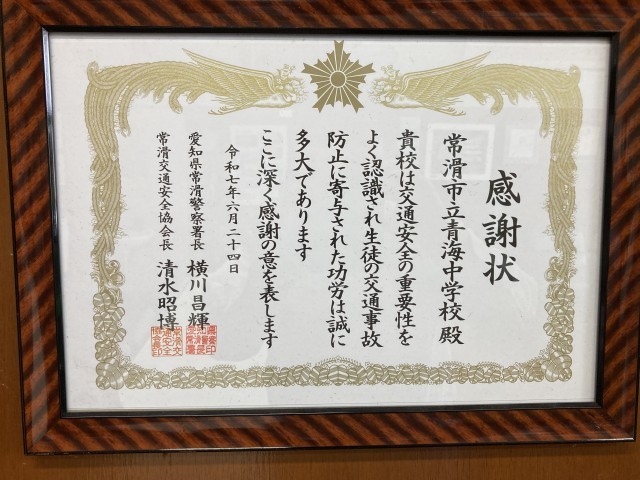 感謝状
常滑市立青海中学校殿
貴校は交通安全の重要性を
よく認識され生徒の交通事故
防止に寄与された功労は誠に
多大であります
ここに深く感謝の意を表します
令和七年六月二十四日
愛知県常滑警察署長 横川昌輝
常滑交通安全協会長 清水昭博